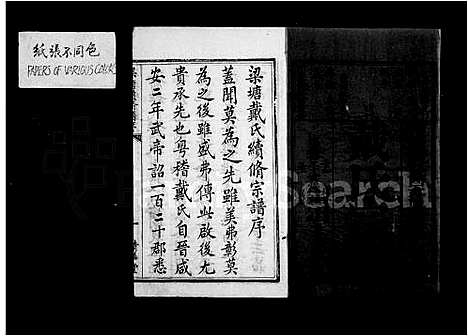 紙張不同色
PAPERS OF VARIOUS COLOR
梁塘戴氏續脩宗譜序
蓋聞莫為之先雖美弗彰莫
為之後雖盛弗傳此啟後尤
貴承先也粤稽戴氏自晉咸
安二年武帝詔一百二十郡悉
Search